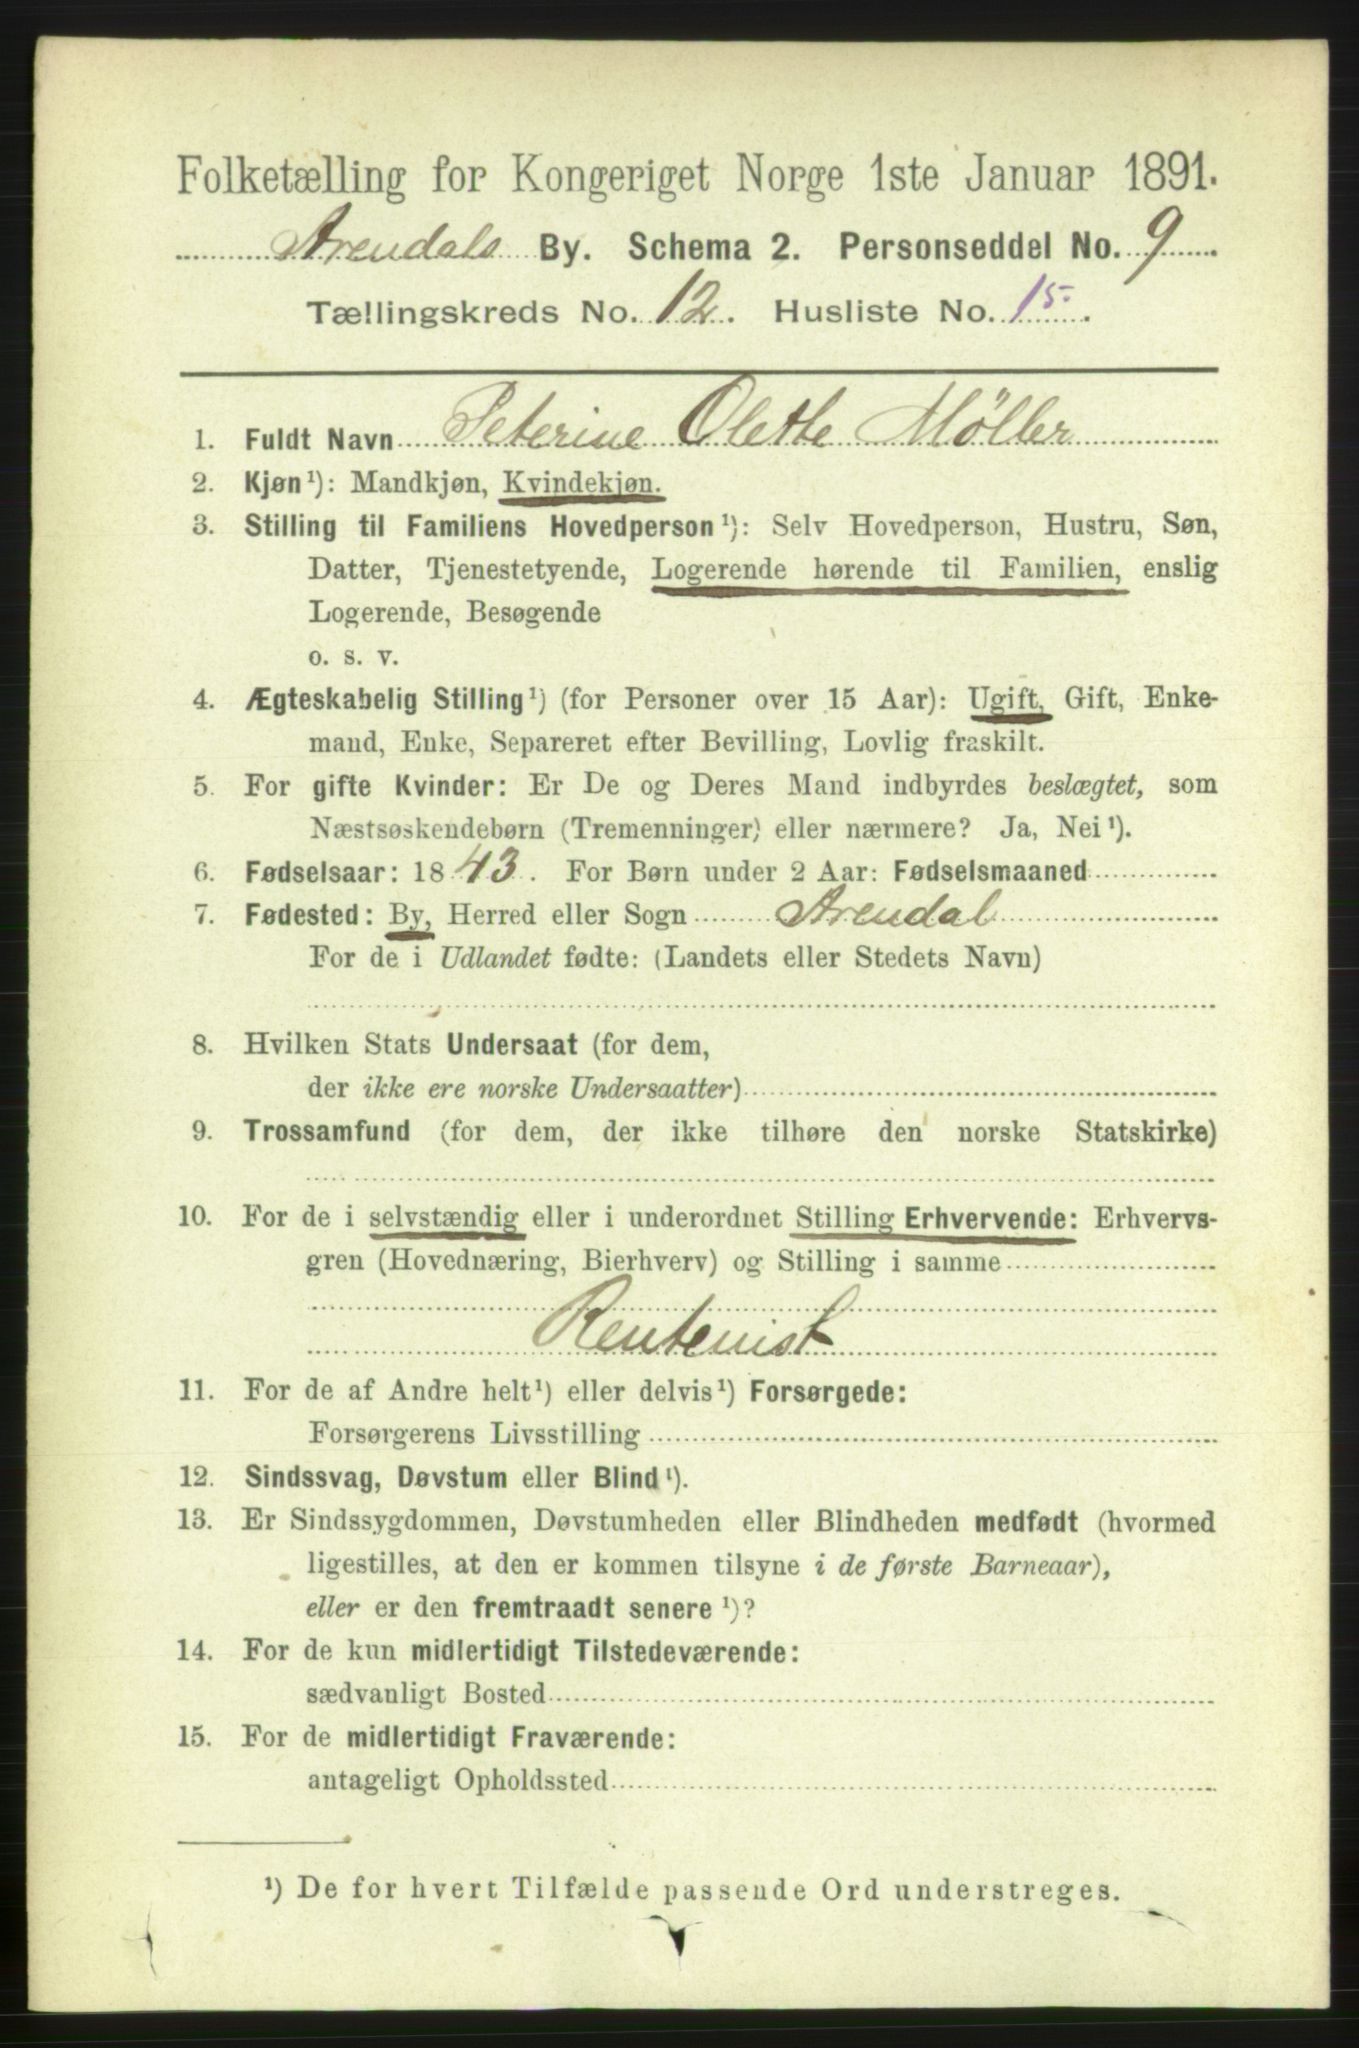 Folketælling for Kongeriget Norge 1ste Januar 1891.
Arendals By. Schema 2. Personseddel No. 9
Tællingskreds No. 12. Husliste No. 15.
1. Fuldt Navn Peterine Olette Møller
2. Kjøn¹): Mandkjøn, Kvindekjøn.
3. Stilling til Familiens Hovedperson¹): Selv Hovedperson, Hustru, Søn,
Datter, Tjenestetyende, Logerende hørende til Familien, enslig
Logerende, Besøgende
o. s. v.
4. Ægteskabelig Stilling¹) (for Personer over 15 Aar): Ugift, Gift, Enke-
mand, Enke, Separeret efter Bevilling, Lovlig fraskilt.
5. For gifte Kvinder: Er De og Deres Mand indbyrdes beslægtet, som
Næstsøskendebørn (Tremenninger) eller nærmere? Ja, Nei¹).
6. Fødselsaar: 1843. For Børn under 2 Aar: Fødselsmaaned
7. Fødested: By, Herred eller Sogn Arendal
For de i Udlandet fødte: (Landets eller Stedets Navn)
8. Hvilken Stats Undersaat (for dem,
der ikke ere norske Undersaatter)
9. Trossamfund (for dem, der ikke tilhøre den norske Statskirke)
10. For de i selvstændig eller i underordnet Stilling Erhvervende: Erhvervs-
gren (Hovednæring, Bierhverv) og Stilling i samme
Rentenist
11. For de af Andre helt¹) eller delvis¹) Forsørgede:
Forsørgerens Livsstilling
12. Sindssvag, Døvstum eller Blind¹).
13. Er Sindssygdommen, Døvstumheden eller Blindheden medfødt (hvormed
ligestilles, at den er kommen tilsyne i de første Barneaar),
eller er den fremtraadt senere¹)?
14. For de kun midlertidigt Tilstedeværende:
sædvanligt Bosted
15. For de midlertidigt Fraværende:
antageligt Opholdssted
¹) De for hvert Tilfælde passende Ord understreges.